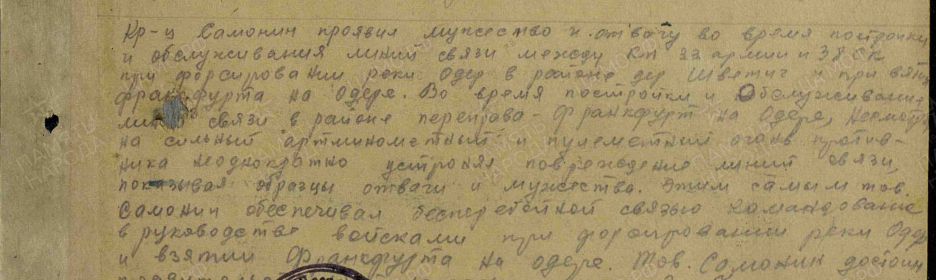 Кр-ц Самонин проявил мужество и отвагу во время постройки
и обслуживания линий связи между КП 33 армии и 38 СК
при форсировании реки Одер в районе дер Шветич и при взятии
Франкфурта на Одере. Во время постройки и обслуживании
линий связи в районе переправа - Франкфурт на Одере, несмотря
на сильный артминометный и пулеметный огонь против-
ника неоднократно устронял повреждение линий связи,
показывая образцы отваги и мужества. Этим самым тов.
Самонин обеспечивал бесперебойной связью командование
в руководстве войсками при форсировании реки Одер
и взятии Франкфурта на Одере. Тов. Самонин достоин